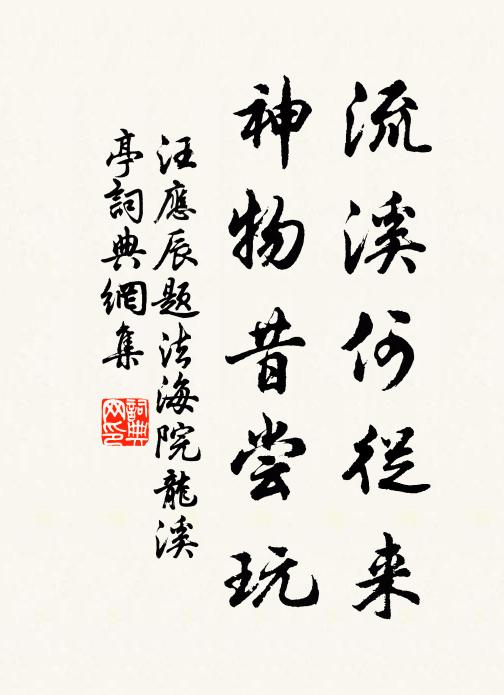 流溪何從来
神物昔尝玩
汪應辰題法海院龍溪
亭詞典網集
詞典网印